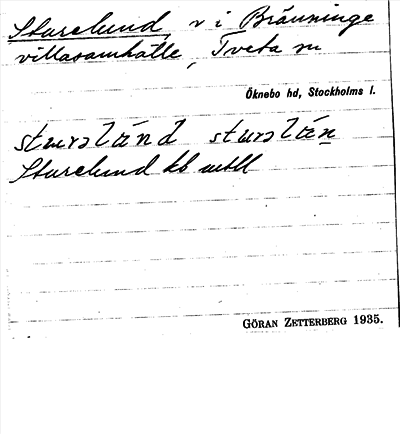 Sturelund, v i Bränninge
villasamhälle, Tveta sn
Öknebo hd, Stockholms l.
Sturelund kb
GÖRAN ZETTERBERG 1935.